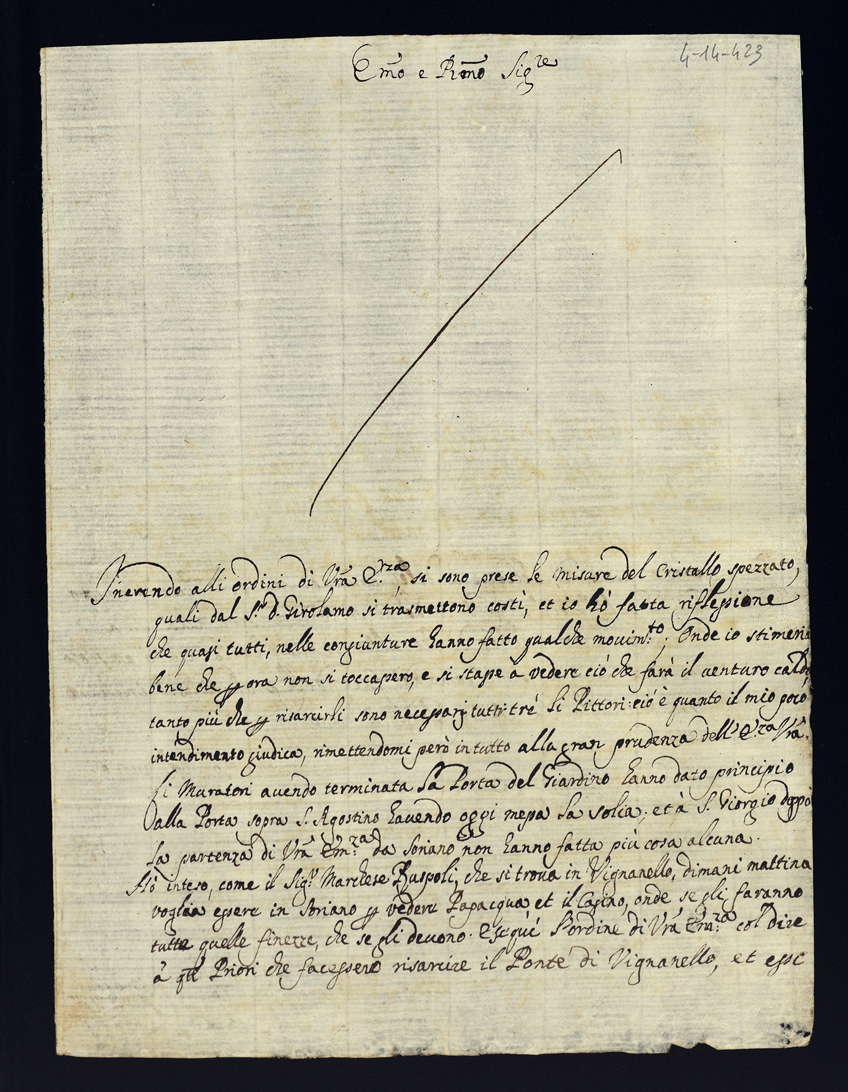 4-14-423
Em̃o e Rm̃o Sig.re
Inerendo alli ordini di Vrã E.za, si sono prese le misure del Cristallo spezzato,
quali dal S.r D. Girolamo si trasmettono costì, et io hò fatta riflessione
che quasi tutti, nelle congiunture hanno fatto qualche movim.to; Onde io stimeria
bene che p ora non si toccassero, e si stasse à vedere ciò che farà il venturo caldo
tanto più che p risarcirli sono necessarj tutti tré li Pittori: ciò è quanto il mio poco
intendimento giudica, rimettendomi però in tutto alla gran prudenza dell'E.za Vrã.
Li Muratori avendo terminata la Porta del Giardino hanno dato principio
alla Porta sopra S. Agostino havendo oggi messa la soglia; et à S. Giorgio doppò
la partenza di Vrã Em.za da Soriano non hanno fatta più cosa alcuna.
Hò inteso, come il Sig.r Marchese Ruspoli, che si trova in Vignanello, dimani mattina
voglia essere in Soriano p vedere Papacqua et il Casino, onde se gli faranno
tutte quelle finezze, che se gli devono. Eseguì l'ordine di Vrã Em.za col dire
à qti Priori che facessero risarcire il Ponte di Vignanello, et esse